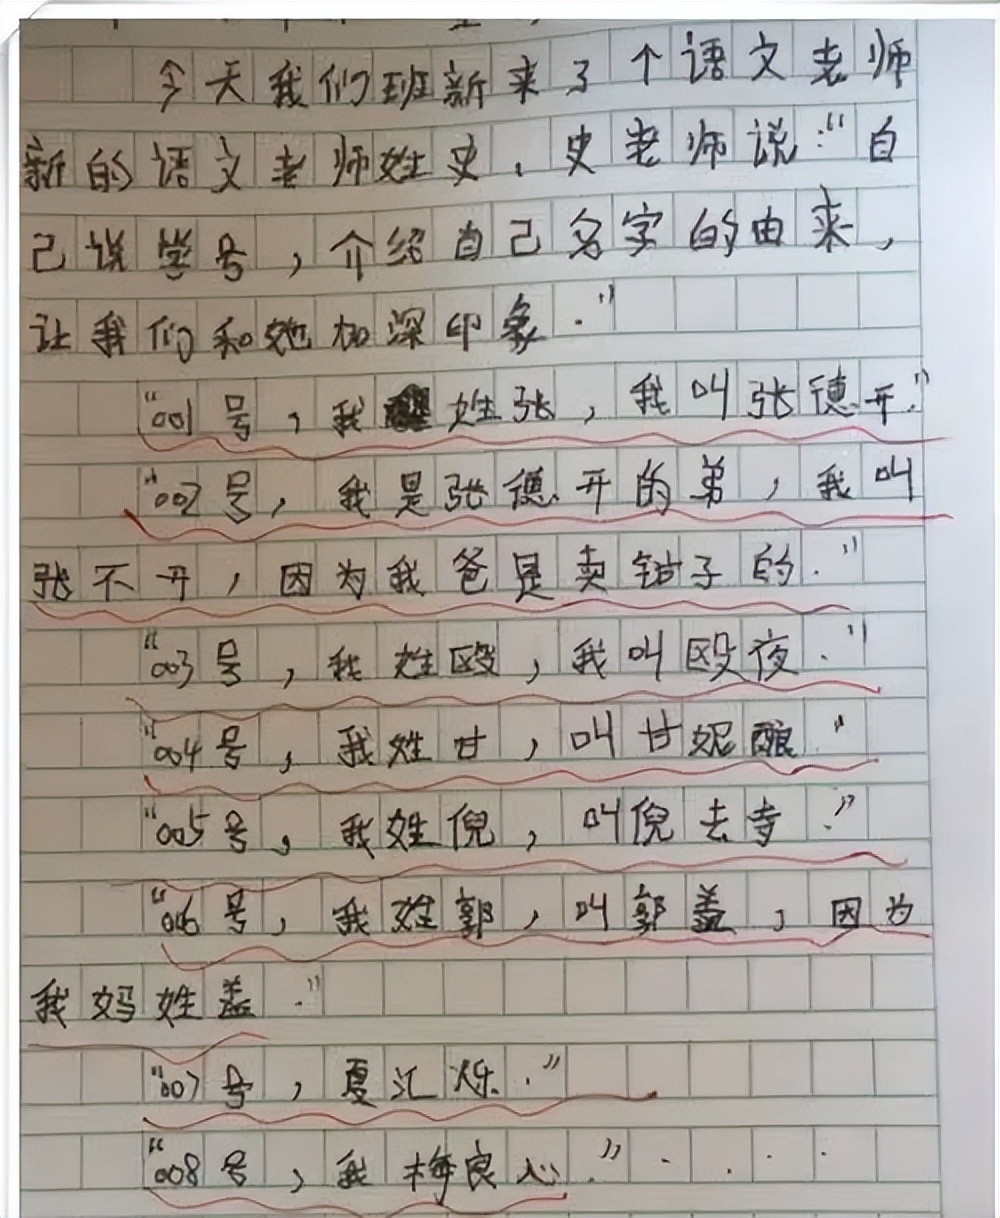 今天我们班新来了个语文老师
新的语文老师姓史,史老师说:“自
己说学号,介绍自己名字的由来,
让我们和她加深印象.”
“001号,我姓张,我叫张德开.”
“002号,我是张德开的弟,我叫
张不开,因为我爸是卖钳子的.”
“003号,我姓殴,我叫殴夜.”
“004号,我姓甘,叫甘妮酿.”
“005号,我姓倪,叫倪去寺.”
“006号,我姓郭,叫郭盖,因为
我妈姓盖.”
“007号,夏汇烁.”
“008号,我梅良心.”....